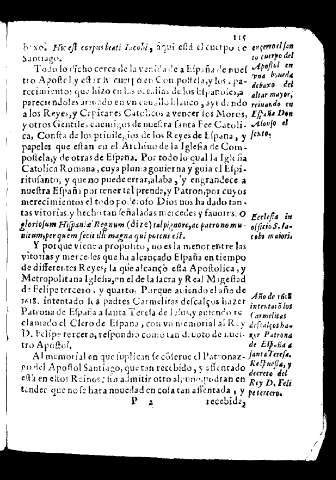 115
baxo. Hic est corpus beati Iacobi, aqui està el cuerpo de
Santiago.
Todo lo dicho cerca de la venida a España de nues
tro Apostol y estar su cuerpo en Compostela, y los apa-
recimientos que hizo en las batallas de los Españoles, a
pareciendoles armado en vn cauallo blanco, ayudando
a los Reyes, y Capitanes Catolicos a vencer los Moros,
y otros Gentiles enemigos de nuestra santa Fee Catoli
ca, Consta de los priuilegios de los Reyes de España, y
papeles que estan en el Archiuo de la Iglesia de Com-
postela, y de otras de Espana. Por todo lo qual la Iglesia
Catolica Romana, cuya pluma gouierna y guia el Espi-
ritu santo, y que no puede errar, alaba, y engrandece a
nuestra España por tener tal prenda, y Patron, por cuyos
merecimientos el todo poderoso Dios nos ha dado tan-
tas vitorias, y hecho tan señaladas mercedes y fauores. O
gloriosum Hispaniæ Regnum (dize) tal pignore, ac patrono mu-
nitum, per quem fecit illi magna qui potens est.
Y porque viene a proposito, no es la menor entre las
vitorias y mercedes que ha alcançado España en tiempo
de differentes Reyes, la que alcançò esta Apostolica, y
Metropolitana Iglesia, en el de la sacra y Real Magestad
de Felipe tercero, y quarto. Porque auiendo el año de
1618. intentado los padres Carmelitas descalços hazer
Patrona de España a santa Teresa de Iesus, y auiendo re
clamado el Clero de Espana, con vn memorial al Rey
D. Felipe tercero, respondio como tan deuoto de nues-
tro Apostol.
Al memorial en que suplican se cōserue el Patronaz-
go del Apostol Santiago, que tan recebido, y assentado
està en estos Reinos, sin admitir otro alguno, podran en
tender que no se harà nouedad en cosa tan assentada, y
P 2 recebida,
cuerpo del
Apostol en
vna boueda
debaxo del
altar mayor,
reinando en
España Don
Alonso el
sexto.
Ecclesia in
officio S. Ia-
cobi maioris.
Año de 1618
intentarō los
Carmelitas
descalços ha-
zer Patrona
de España a
santa Teresa.
Respuesta, y
decreto del
Rey D. Feli
pe tercero.